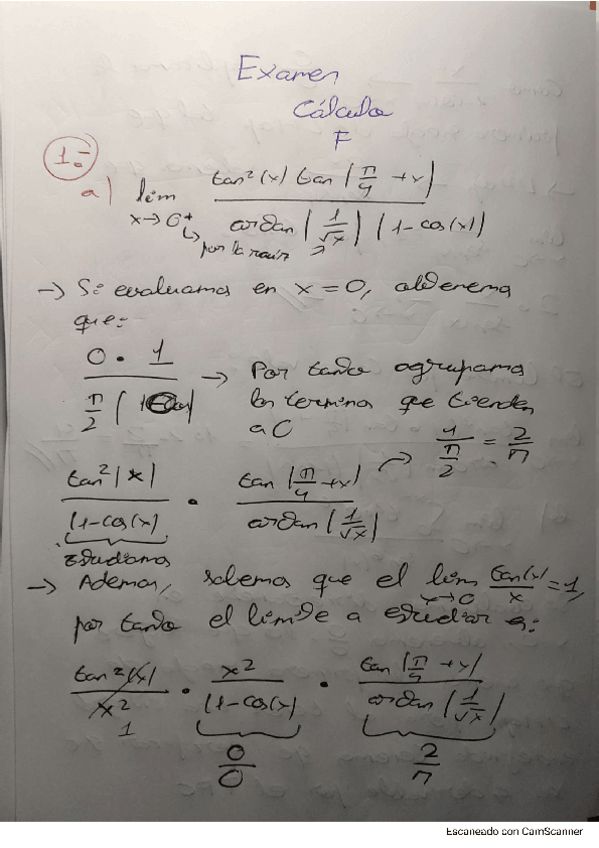 Examen
Cálculo
F
1.-
a) lím x→0⁺ tan²(x) tan(π/4 +x) / arctan(1/√x) (1-cos(x))
↳ por la raíz
→ Si evaluamos en x = 0, obtenemos
que:
0 · 1 / π/2 ( → Por tanto agrupamos
los termino que tienden
a 0
1 / π/2 = 2/π
tan²(x) / (1-cos(x)) · tan(π/4 +x) / arctan(1/√x)
Estudiamos
→ Ademas, sabemos que el lím x→0 tan(x)/x = 1,
por tanto el límite a estudiar es:
tan²(x) / x² · x² / (1-cos(x)) · tan(π/4 +x) / arctan(1/√x)
1
0/0
2/π
Escaneado con CamScanner